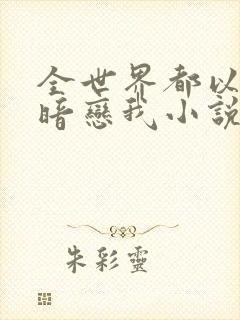 全世界都以
暗戀我小說
朱彩靈